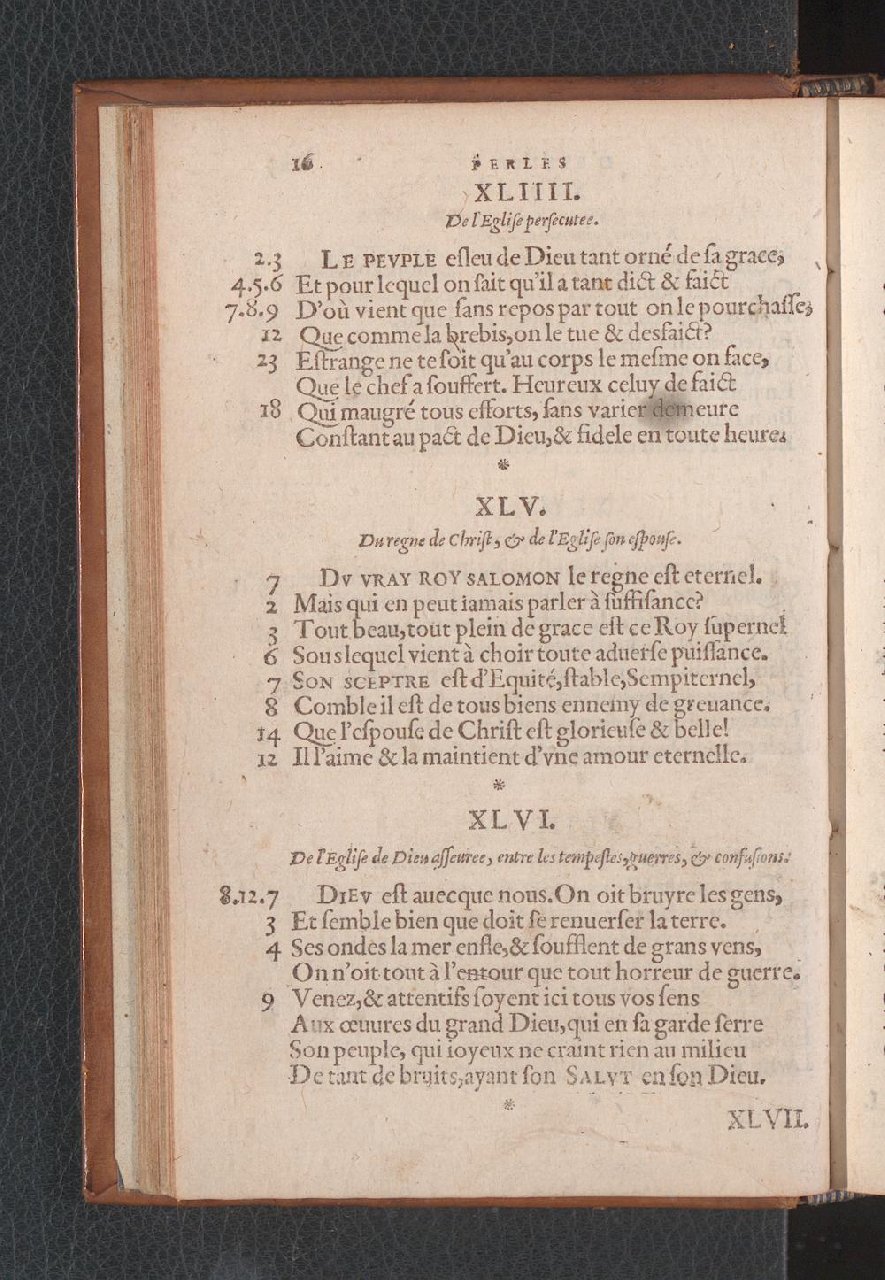 16 PERLES
XLIIII.
De l'Egliſe perſecutee.
2.3 LE PEVPLE eſleu de Dieu tant orné de ſa grace,
4.5.6 Et pour lequel on ſait qu'il a tant dict & faict
7.8.9 D'où vient que ſans repos par tout on le pourchaſſe,
12 Que comme la brebis, on le tue & desfaict?
23 Eſtrange ne te ſoit qu'au corps le meſme on face,
Que le chef a ſouffert. Heureux celuy de faict
18 Qui maugré tous efforts, ſans varier demeure
Conſtant au pact de Dieu, & fidele en toute heure.
*
XLV.
Du regne de Chriſt, & de l'Egliſe ſon eſpouſe.
7 DV VRAY ROY SALOMON le regne eſt eternel.
2 Mais qui en peut iamais parler à ſuffiſance?
3 Tout beau, tout plein de grace eſt ce Roy ſupernel
6 Sous lequel vient à choir toute aduerſe puiſſance.
7 SON SCEPTRE eſt d'Equité, ſtable, Sempiternel,
8 Comble il eſt de tous biens ennemy de greuance.
14 Que l'eſpouſe de Chriſt eſt glorieuſe & belle!
12 Il l'aime & la maintient d'vne amour eternelle.
*
XLVI.
De l'Egliſe de Dieu aſſeuree, entre les tempeſtes, guerres, & confuſions.
8.12.7 DIEV eſt auecque nous. On oit bruyre les gens,
3 Et ſemble bien que doit ſe renuerſer la terre.
4 Ses ondes la mer enfle, & ſoufflent de grans vens,
On n'oit tout à l'entour que tout horreur de guerre.
9 Venez, & attentifs ſoyent ici tous vos ſens
Aux œuures du grand Dieu, qui en ſa garde ſerre
Son peuple, qui ioyeux ne craint rien au milieu
De tant de bruits, ayant ſon SALVT en ſon Dieu.
*
XLVII.